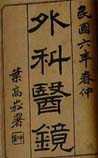 民國六年春仲
外科醫鏡
葉高崧署